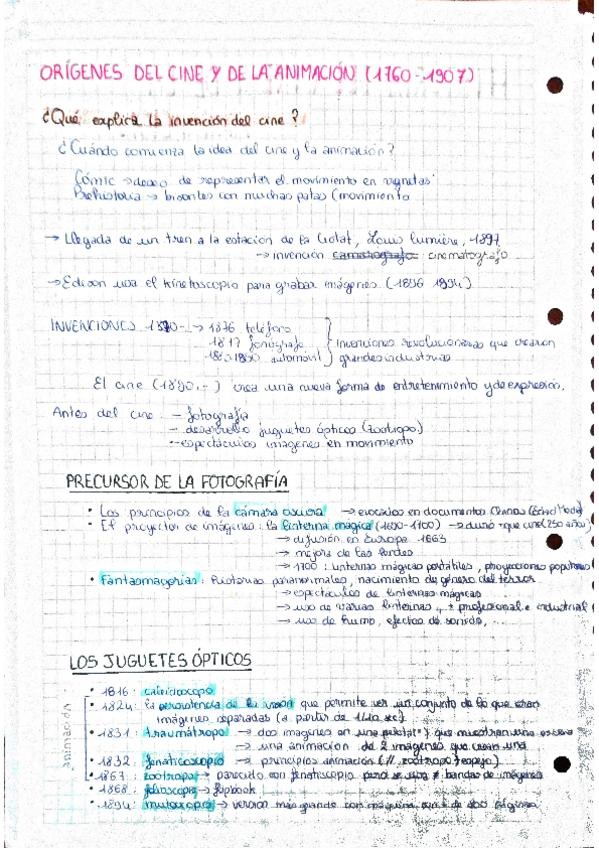 ORÍGENES DEL CINE Y DE LA ANIMACIÓN (1760-1907)
¿Qué explica la invención del cine?
¿Cuándo comienza la idea del cine y la animación?
Cómic → deseo de representar el movimiento en viñetas
Prehistoria → bisontes con muchas patas (movimiento
→ Llegada de un tren a la estación de la Ciotat, Louis Lumière, 1897
→ invención cinematógrafo
→ Edison usa el kinetoscopio para grabar imágenes (1896 1994)
INVENCIONES 1870- → 1876 teléfono
1877 fonógrafo
automóvil
Invenciones revolucionarias que crearon
grandes industrias
El cine (1890,-) crea una nueva forma de entretenimiento y de expresión.
Antes del cine: - fotografía
- desarrollo juguetes ópticos (zootropo)
- espectáculos imágenes en movimiento
PRECURSOR DE LA FOTOGRAFÍA
• Los principios de la cámara oscura → evocados en documentos chinos
• El proyector de imágenes: la linterna mágica (1600-1700) → duró + que cine (250 años)
→ difusión en Europa 1663
→ mejora de las lentes
→ 1700: linternas mágicas portables, proyecciones populares
• Fantasmagorías: historias paranormales, nacimiento de género del terror
→ espectáculos de linternas mágicas
→ uso de varias linternas, + profesional e industrial
→ uso de humo, efectos de sonido, ...
LOS JUGUETES ÓPTICOS
animación
• 1816: caleidoscopo
• 1824: la persistencia de la visión que permite ver un conjunto de lo que eran
imágenes separadas (a partir de
• 1831: traumátropo → dos imágenes en que muestran una escena
→ una animación de 2 imágenes que crean una
• 1832: fenaticoscopio → principios animación (// zootropo espejo)
• 1867: zootropo → parecido con fenaticopio pero se usa bandas de imágenes
• 1868: folioscopio → flipbook
• 1894: mutoscopio → version más grande con